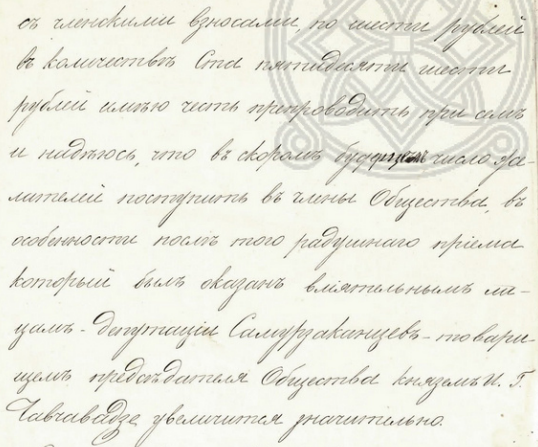 съ членскими взносами, по шести рублей
въ количествѣ Ста пятидесяти шести
рублей имѣю честь препроводить при семъ
и надѣюсь, что въ скоромъ будущемъ число жа-
лателей поступить въ члены Общества, въ
особенности послѣ того радушнаго пріема
который былъ оказанъ вліятельнымъ ли-
цамъ - депутаціи Самурзаканцевъ - товари-
щемъ предсѣдателя Общества княземъ И. Г.
Чавчавадзе увеличится значительно.